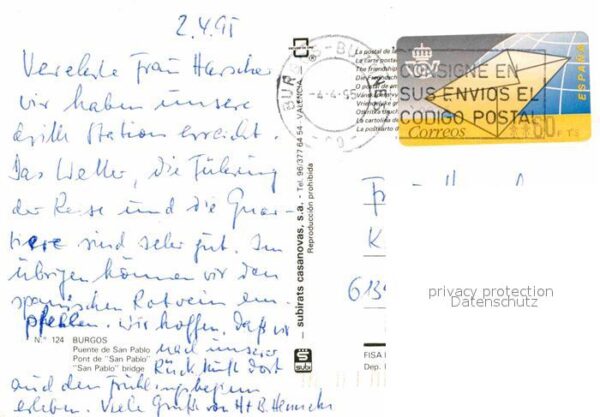 2.4.95
Verehrte Frau Harscher
wir haben unsere
dritte Station erreicht.
Das Wetter, die Führung
der Reise und die Quar-
tiere sind sehr gut. Im
übrigen können wir den
spanischen Rotwein em-
pfehlen. Wir hoffen, daß wir
nach unserer
Rückkunft dort
auch den Frühlingsbeginn
erleben. Viele Grüße von H + B.
Nº 124 BURGOS
Puente de San Pablo
Pont de "San Pablo"
"San Pablo" bridge
subirats casanovas, s.a. - Tel. 96/377 64 54 - VALENCIA
Reproducción prohibida
sub
BURGOS-BU
-4-4-95
La postal de la
La carte posta
The friendship
Die Freundsch
O postal da
La cartolina de
La postkarto d
CONSIGNE EN
SUS ENVIOS EL
CODIGO POSTAL
Correos
ESPAÑA
**60 PTS
F
K
613
privacy protection
Datenschutz
FISA
Dep.